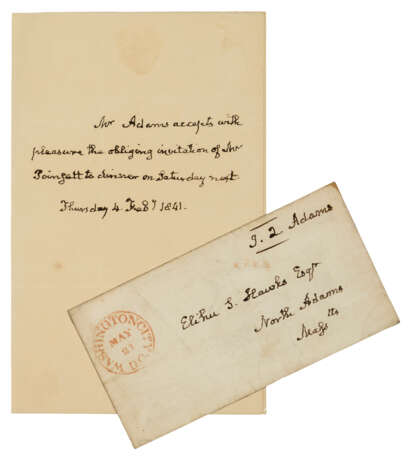 Mr Adams accepts with
pleasure the obliging invitation of Mr
Poinsett to dinner on Saturday next.
Thursday 4 Feby 1841.
J. Q. Adams
FREE
Elihu S. Hawks Esqr
North Adams
Mass
WASHINGTON CITY D.C.
MAY